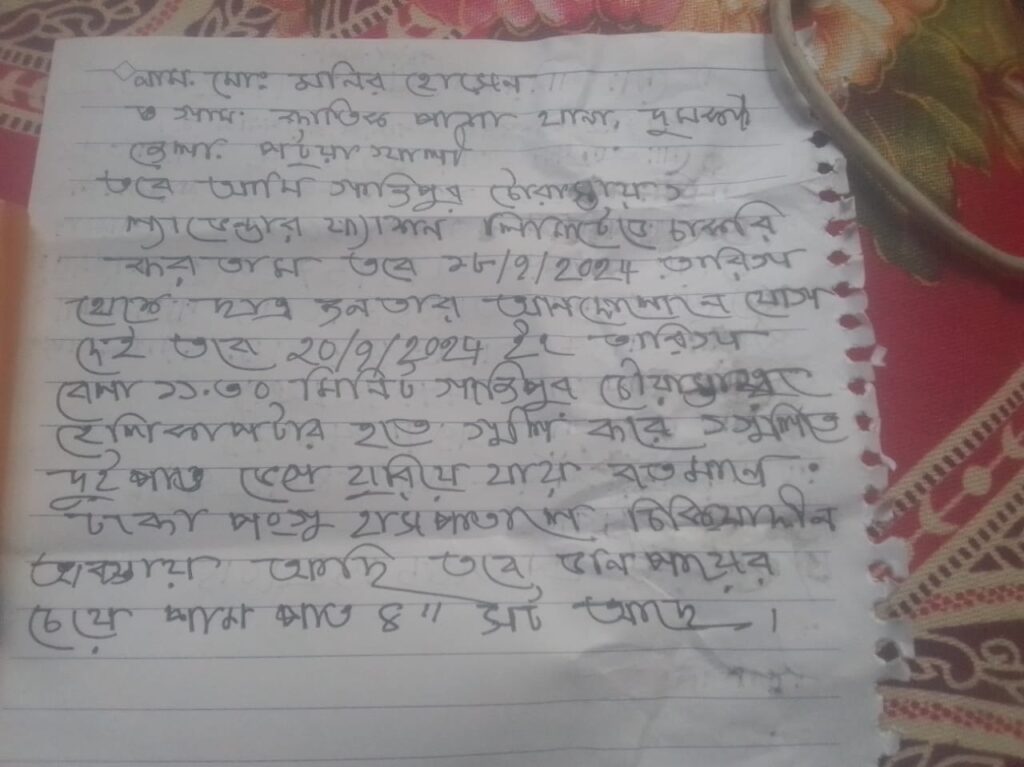 নাম. মোঃ মনির হোসেন
গ্রাম. কার্তিক পাশা থানা. দুমকী
জেলা. পটুয়াখালী
তবে আমি গাজীপুর চৌরাস্তায়
ল্যাভেন্ডার ফ্যাশন লিমিটেডে চাকরি
করতাম তবে ১৮/৭/2024 তারিখ
থেকে ছাত্র জনতার আনদোলনে যোগ
দেই তবে ২০/৭/2024 ইং তারিখ
বেলা ১১.৩০ মিনিট গাজীপুর চৌরাস্তায়
হেলিকাপটার হতে গুলি করে গুলিতে
দুই পাও ভেঙ্গে যায় বতমানে
ঢাকা পংগু হাসপাতালে চিকিৎসাধীন
অবস্থায় আছি তবে ডান পায়ের
চেয়ে বাম পাও ৪" সট আছে।